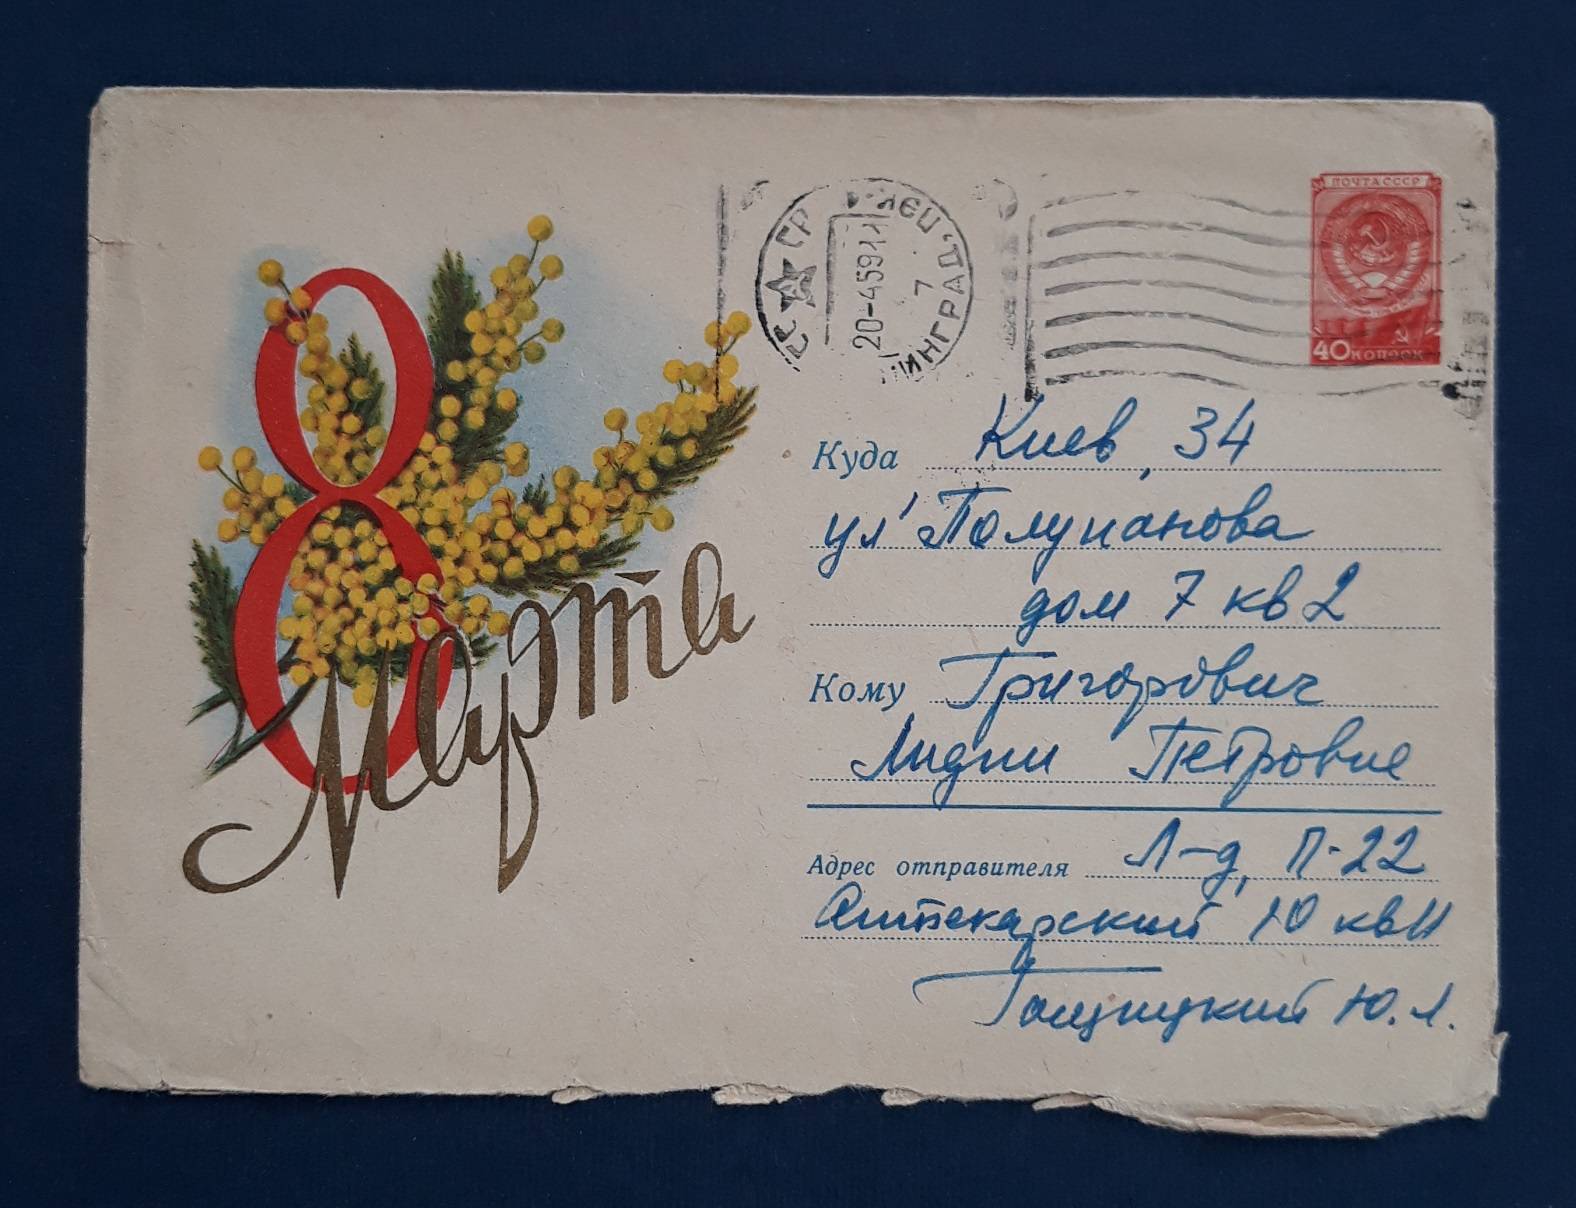 8
Марта
ПОЧТА СССР
40 КОПЕЕК
20-4-59
7
Куда Киев, 34
ул. Полупанова
дом 7 кв 2
Кому Григорович
Лидии Петровне
Адрес отправителя Л-д, П-22
Аптекарский 10 кв 11
Ю.Л.